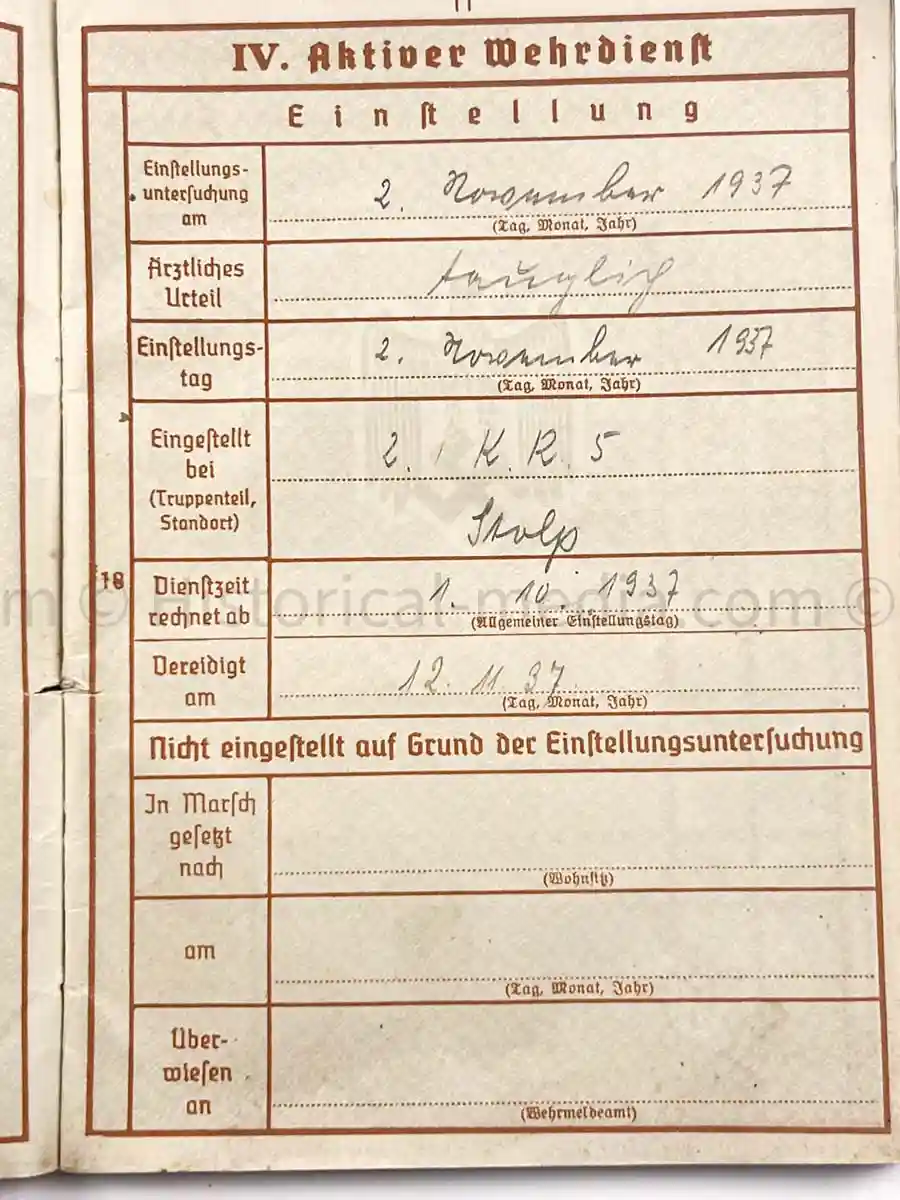 11
IV. Aktiver Wehrdienst
Einstellung
Einstellungs-
untersuchung
am
2. November 1937
(Tag, Monat, Jahr)
Ärztliches
Urteil
tauglich
Einstellungs-
tag
2. November 1937
(Tag, Monat, Jahr)
Eingestellt
bei
(Truppenteil,
Standort)
2. / K. R. 5
Stolp
18
Dienstzeit
rechnet ab
1. 10. 1937
(Allgemeiner Einstellungstag)
Vereidigt
am
12. 11. 37.
(Tag, Monat, Jahr)
Nicht eingestellt auf Grund der Einstellungsuntersuchung
In Marsch
gesetzt
nach
(Wohnsitz)
am
(Tag, Monat, Jahr)
Über-
wiesen
an
(Wehrmeldeamt)